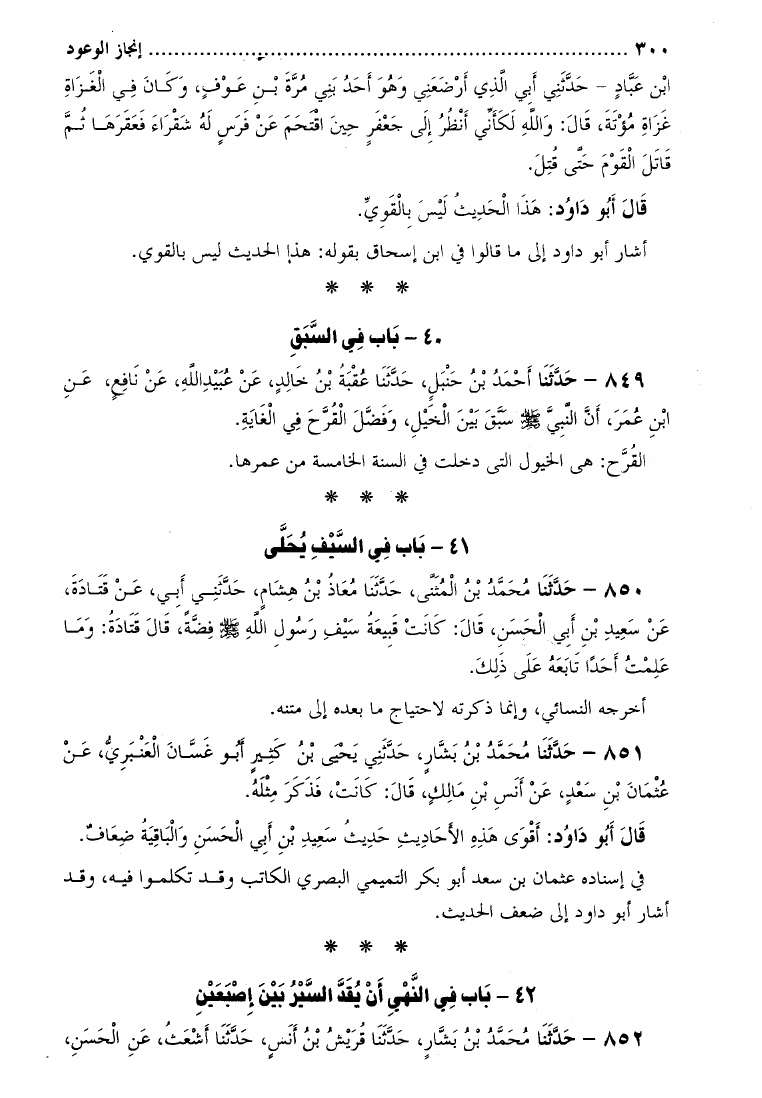 ٣٠٠ ................................................................ إنجاز الوعود
ابْن عَبَّادٍ - حَدَّثَنِي أَبِي الَّذِي أَرْضَعَنِي وَهُوَ أَحَدُ بَنِي مُرَّةَ بْنِ عَوْفٍ، وَكَانَ فِي الْغَزَاةِ
غَزَاةِ مُؤْتَةَ، قَالَ: وَاللَّهِ لَكَأَنِّي أَنْظُرُ إِلَى جَعْفَرٍ حِينَ اقْتَحَمَ عَنْ فَرَسٍ لَهُ شَقْرَاءَ فَعَقَرَهَا ثُمَّ
قَاتَلَ الْقَوْمَ حَتَّى قُتِلَ.
قَالَ أَبُو دَاوُد: هَذَا الْحَدِيثُ لَيْسَ بِالْقَوِيِّ.
أشار أبو داود إلى ما قالوا في ابن إسحاق بقوله: هذا الحديث ليس بالقوي.
* * *
٤٠ - بَاب فِي السَّبَقِ
٨٤٩ - حَدَّثَنَا أَحْمَدُ بْنُ حَنْبَلٍ، حَدَّثَنَا عُقْبَةُ بْنُ خَالِدٍ، عَنْ عُبَيْدِاللَّهِ، عَنْ نَافِعٍ، عَنِ
ابْنِ عُمَرَ، أَنَّ النَّبِيَّ ﷺ سَبَّقَ بَيْنَ الْخَيْلِ، وَفَضَّلَ الْقُرَّحَ فِي الْغَايَةِ.
القُرَّح: هى الخيول التى دخلت في السنة الخامسة من عمرها.
* * *
٤١ - بَاب فِي السَّيْفِ يُحَلَّى
٨٥٠ - حَدَّثَنَا مُحَمَّدُ بْنُ الْمُثَنَّى، حَدَّثَنَا مُعَاذُ بْنُ هِشَامٍ، حَدَّثَنِي أَبِي، عَنْ قَتَادَةَ،
عَنْ سَعِيدِ بْنِ أَبِي الْحَسَنِ، قَالَ: كَانَتْ قَبِيعَةُ سَيْفِ رَسُولِ اللَّهِ ﷺ فِضَّةً، قَالَ قَتَادَةُ: وَمَا
عَلِمْتُ أَحَدًا تَابَعَهُ عَلَى ذَلِكَ.
أخرجه النسائي، وإنما ذكرته لاحتياج ما بعده إلى متنه.
٨٥١ - حَدَّثَنَا مُحَمَّدُ بْنُ بَشَّارٍ، حَدَّثَنِي يَحْيَى بْنُ كَثِيرٍ أَبُو غَسَّانَ الْعَنْبَرِيُّ، عَنْ
عُثْمَانَ بْنِ سَعْدٍ، عَنْ أَنَسِ بْنِ مَالِكٍ، قَالَ: كَانَتْ، فَذَكَرَ مِثْلَهُ.
قَالَ أَبُو دَاوُد: أَقْوَى هَذِهِ الأَحَادِيثِ حَدِيثُ سَعِيدِ بْنِ أَبِي الْحَسَنِ وَالْبَاقِيَةُ ضِعَافٌ.
في إسناده عثمان بن سعد أبو بكر التميمي البصري الكاتب وقد تكلموا فيه، وقد
أشار أبو داود إلى ضعف الحديث.
* * *
٤٢ - بَاب فِي النَّهْيِ أَنْ يُقَدَّ السَّيْرُ بَيْنَ إِصْبَعَيْنِ
٨٥٢ - حَدَّثَنَا مُحَمَّدُ بْنُ بَشَّارٍ، حَدَّثَنَا قُرَيْشُ بْنُ أَنَسٍ، حَدَّثَنَا أَشْعَثُ، عَنِ الْحَسَنِ،